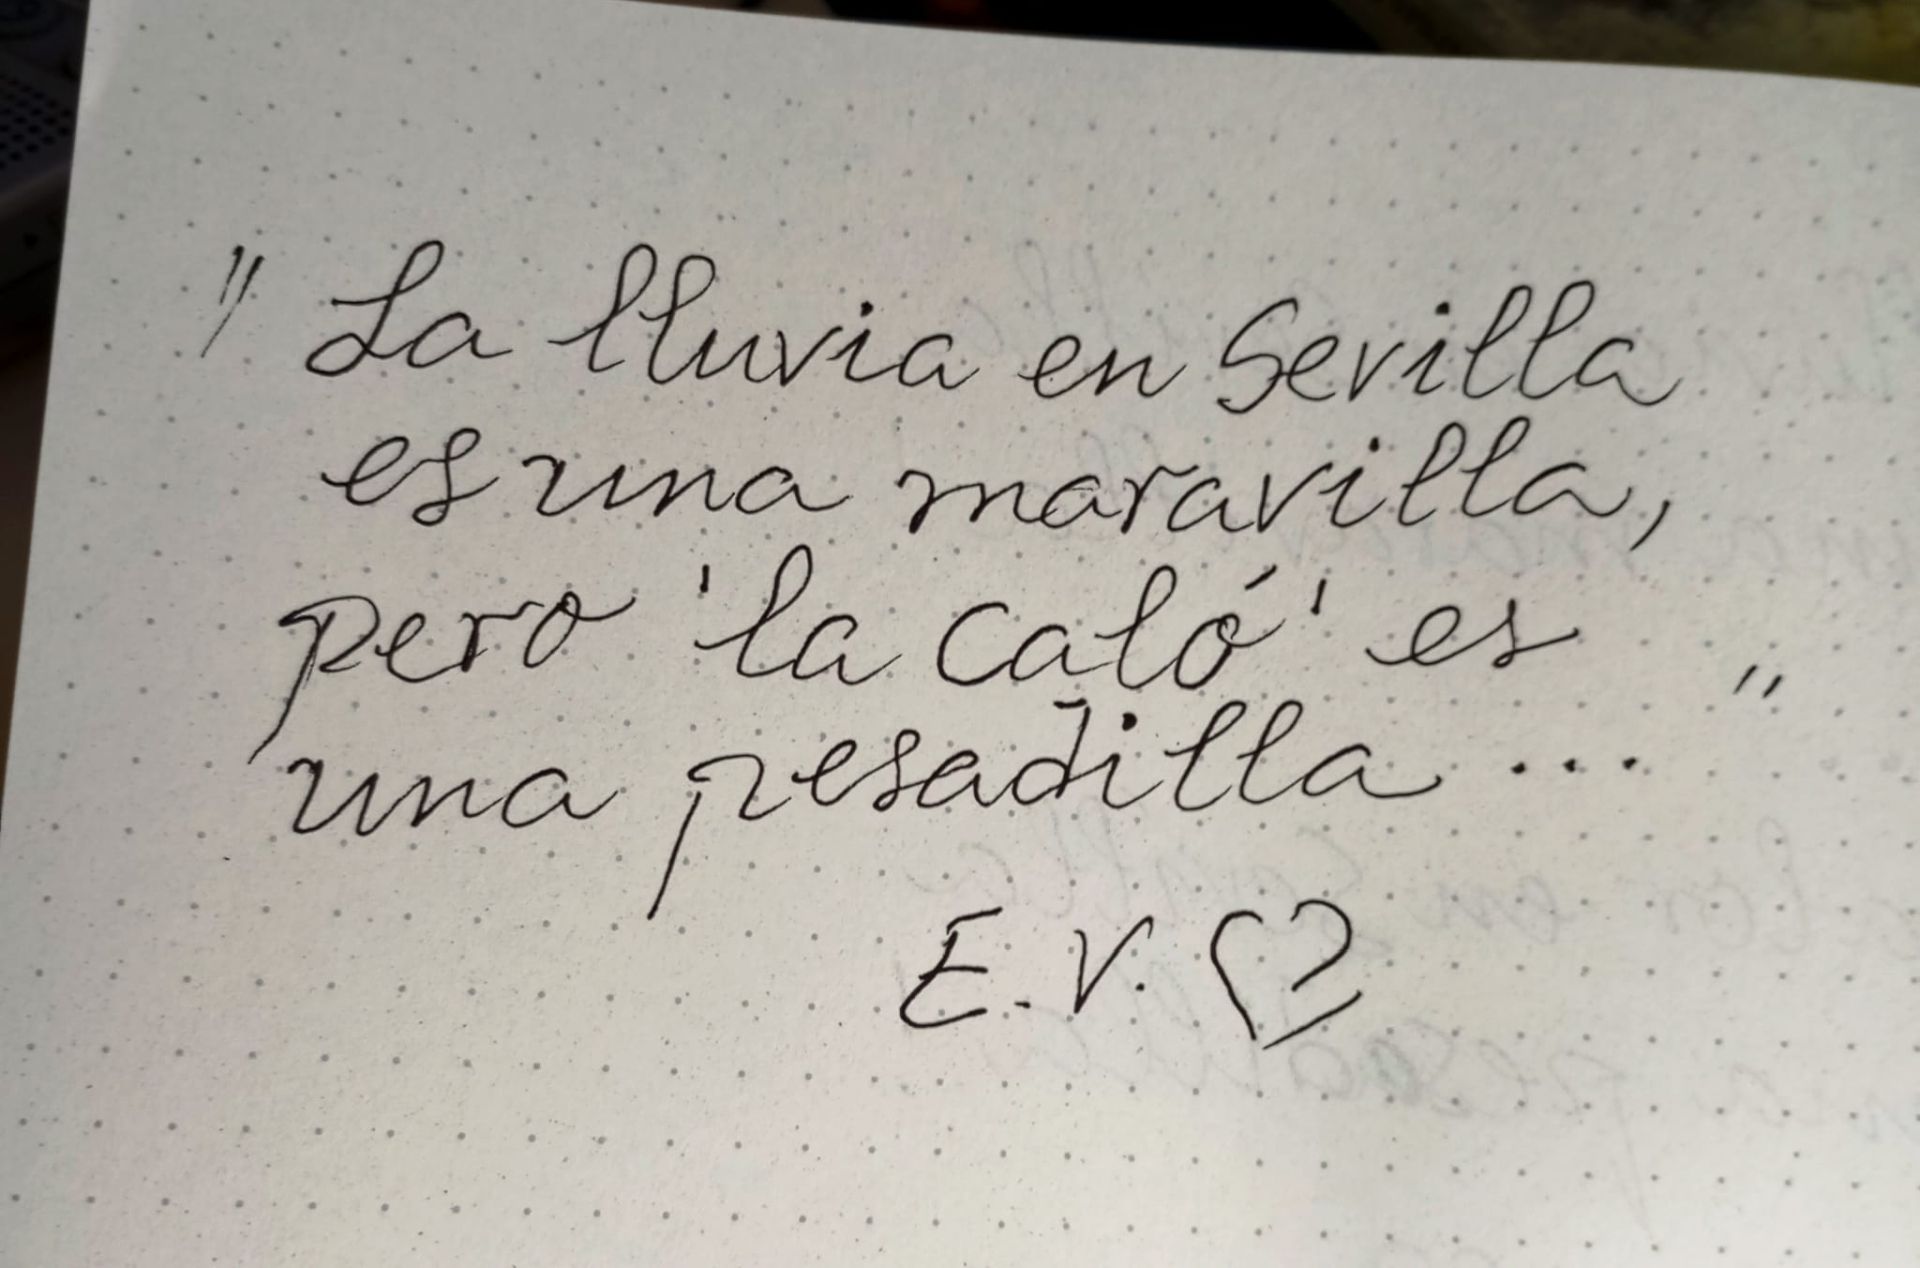 "La lluvia en Sevilla
es una maravilla,
pero 'la caló' es
una pesadilla..."
E.V. ♡